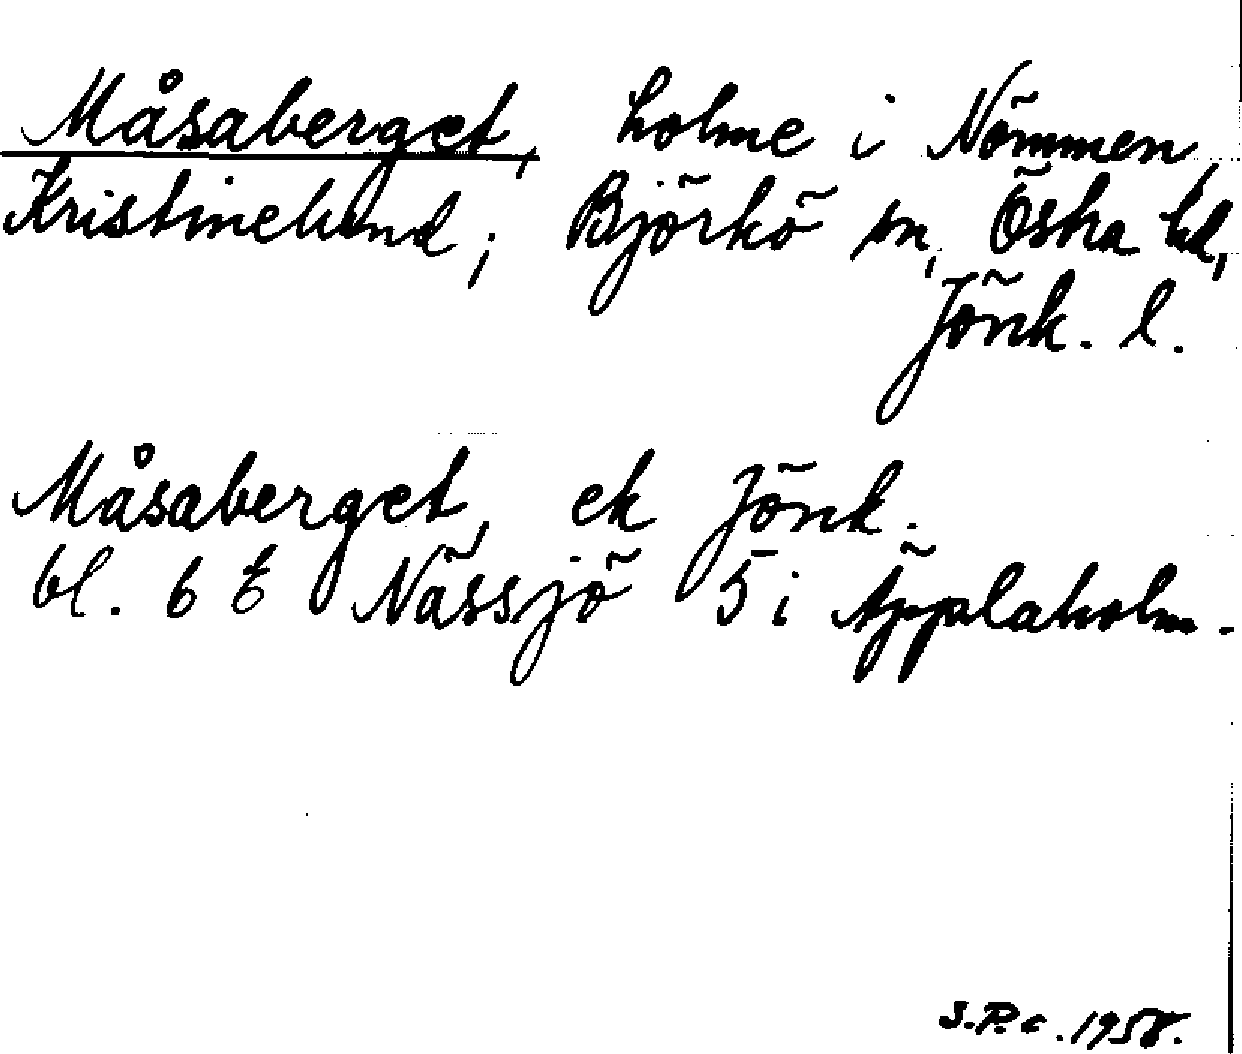 Måsaberget, holme i Nömmen,
Kristinelund; Björkö sn, Östra hd,
Jönk. l.
Måsaberget, ek Jönk.
bl. 6 E Nässjö 5 i Äpplaholm.
S.R.c. 1958.